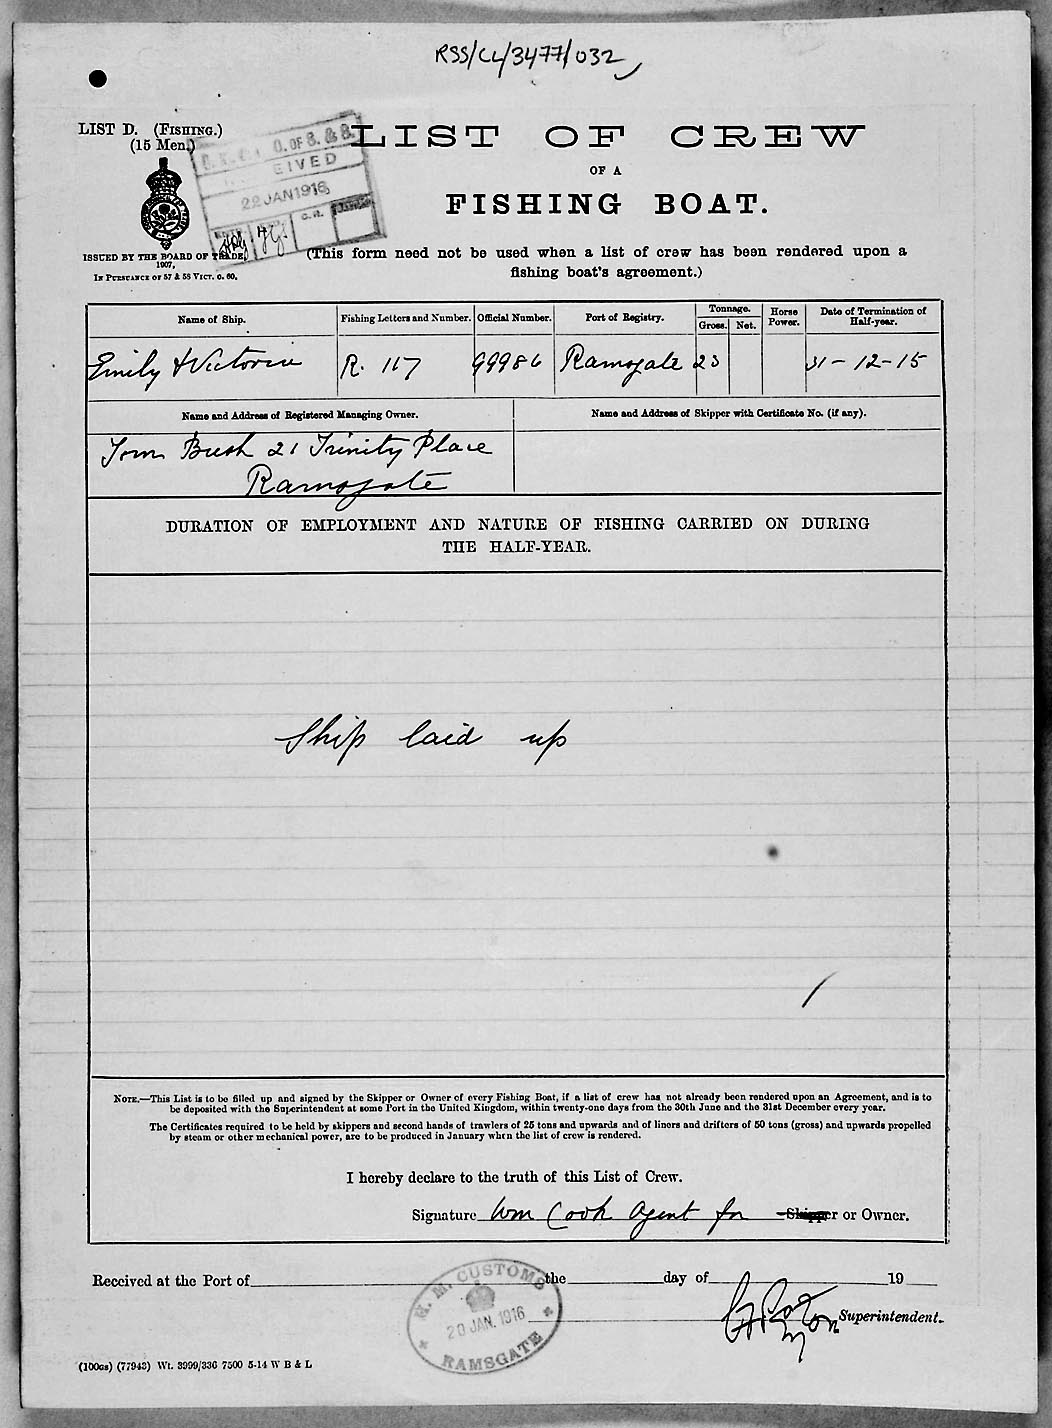 RSS/CL/3477/032
LIST D. (FISHING.)
(15 Men.)
O. OF S. & S.
22 JAN 1916
LIST OF CREW
OF A
FISHING BOAT.
ISSUED BY THE BOARD OF TRADE,
1907,
IN PURSUANCE OF 57 & 58 VICT. C. 60.
(This form need not be used when a list of crew has been rendered upon a
fishing boat's agreement.)
Name of Ship. Fishing Letters and Number. Official Number. Port of Registry. Tonnage. Gross. Net. Horse Power. Date of Termination of Half-year.
Emily & Victoria R. 117 99986 Ramsgate 23 31-12-15
Name and Address of Registered Managing Owner. Name and Address of Skipper with Certificate No. (if any).
Tom Bush 21 Trinity Place
Ramsgate
DURATION OF EMPLOYMENT AND NATURE OF FISHING CARRIED ON DURING
THE HALF-YEAR.
Ship laid up
NOTE.—This List is to be filled up and signed by the Skipper or Owner of every Fishing Boat, if a list of crew has not already been rendered upon an Agreement, and is to
be deposited with the Superintendent at some Port in the United Kingdom, within twenty-one days from the 30th June and the 31st December every year.
The Certificates required to be held by skippers and second hands of trawlers of 25 tons and upwards and of liners and drifters of 50 tons (gross) and upwards propelled
by steam or other mechanical power, are to be produced in January when the list of crew is rendered.
I hereby declare to the truth of this List of Crew.
Signature Wm Cook Agent for Skipper or Owner.
Received at the Port of the day of 19
H. M. CUSTOMS
20 JAN. 1916
RAMSGATE
Superintendent.
(100GS) (77943) Wt. 3999/336 7500 5-14 W B & L